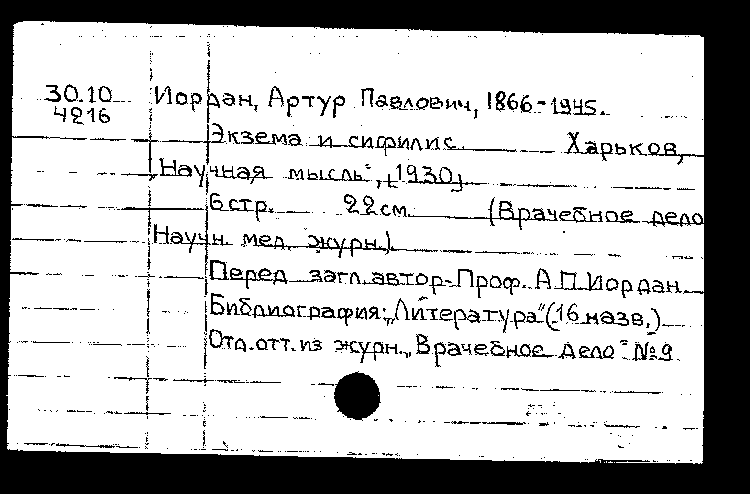 30.10 Иордан, Артур Павлович, 1866-1945.
4216
Экзема и сифилис. Харьков,
„Научная мысль", [1930]
6 стр. 22 см. (Врачебное дело
Научн. мед. журн.).
Перед загл. автор-Проф. А.П.Иордан.
Библиография: „Литература" (16 назв.)
Отд. отт. из журн. „Врачебное дело" №9